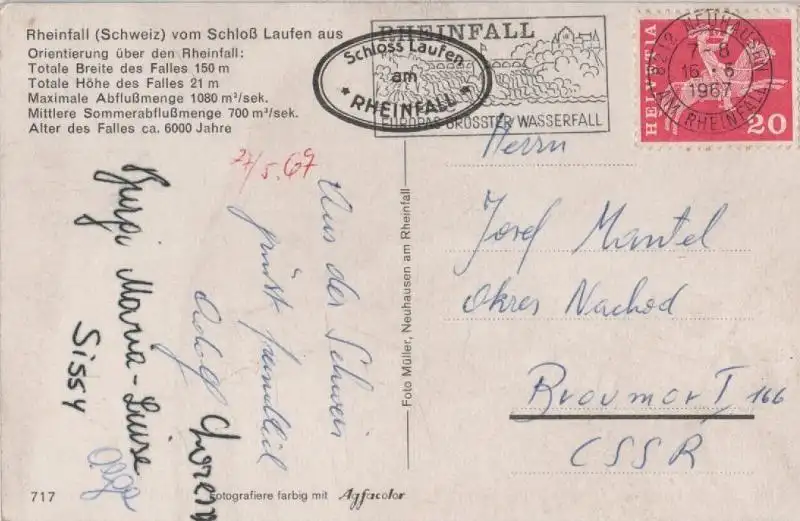 Rheinfall (Schweiz) vom Schloß Laufen aus
Orientierung über den Rheinfall:
Totale Breite des Falles 150 m
Totale Höhe des Falles 21 m
Maximale Abflußmenge 1080 m³/sek.
Mittlere Sommerabflußmenge 700 m³/sek.
Alter des Falles ca. 6000 Jahre
RHEINFALL
EUROPAS GRÖSSTER WASSERFALL
Schloss Laufen
am
* RHEINFALL *
8212 NEUHAUSEN
7-8
1967
AM RHEINFALL
HELVETIA
20
27/5.67
Aus der Schweiz
grüßt
Adolf
Maria-Luise
Sissy
Olga
Foto Müller, Neuhausen am Rheinfall
Herrn
Josef Mantel
Okres Nachod
Broumov I 166
ČSSR
717
Fotografiere farbig mit Agfacolor